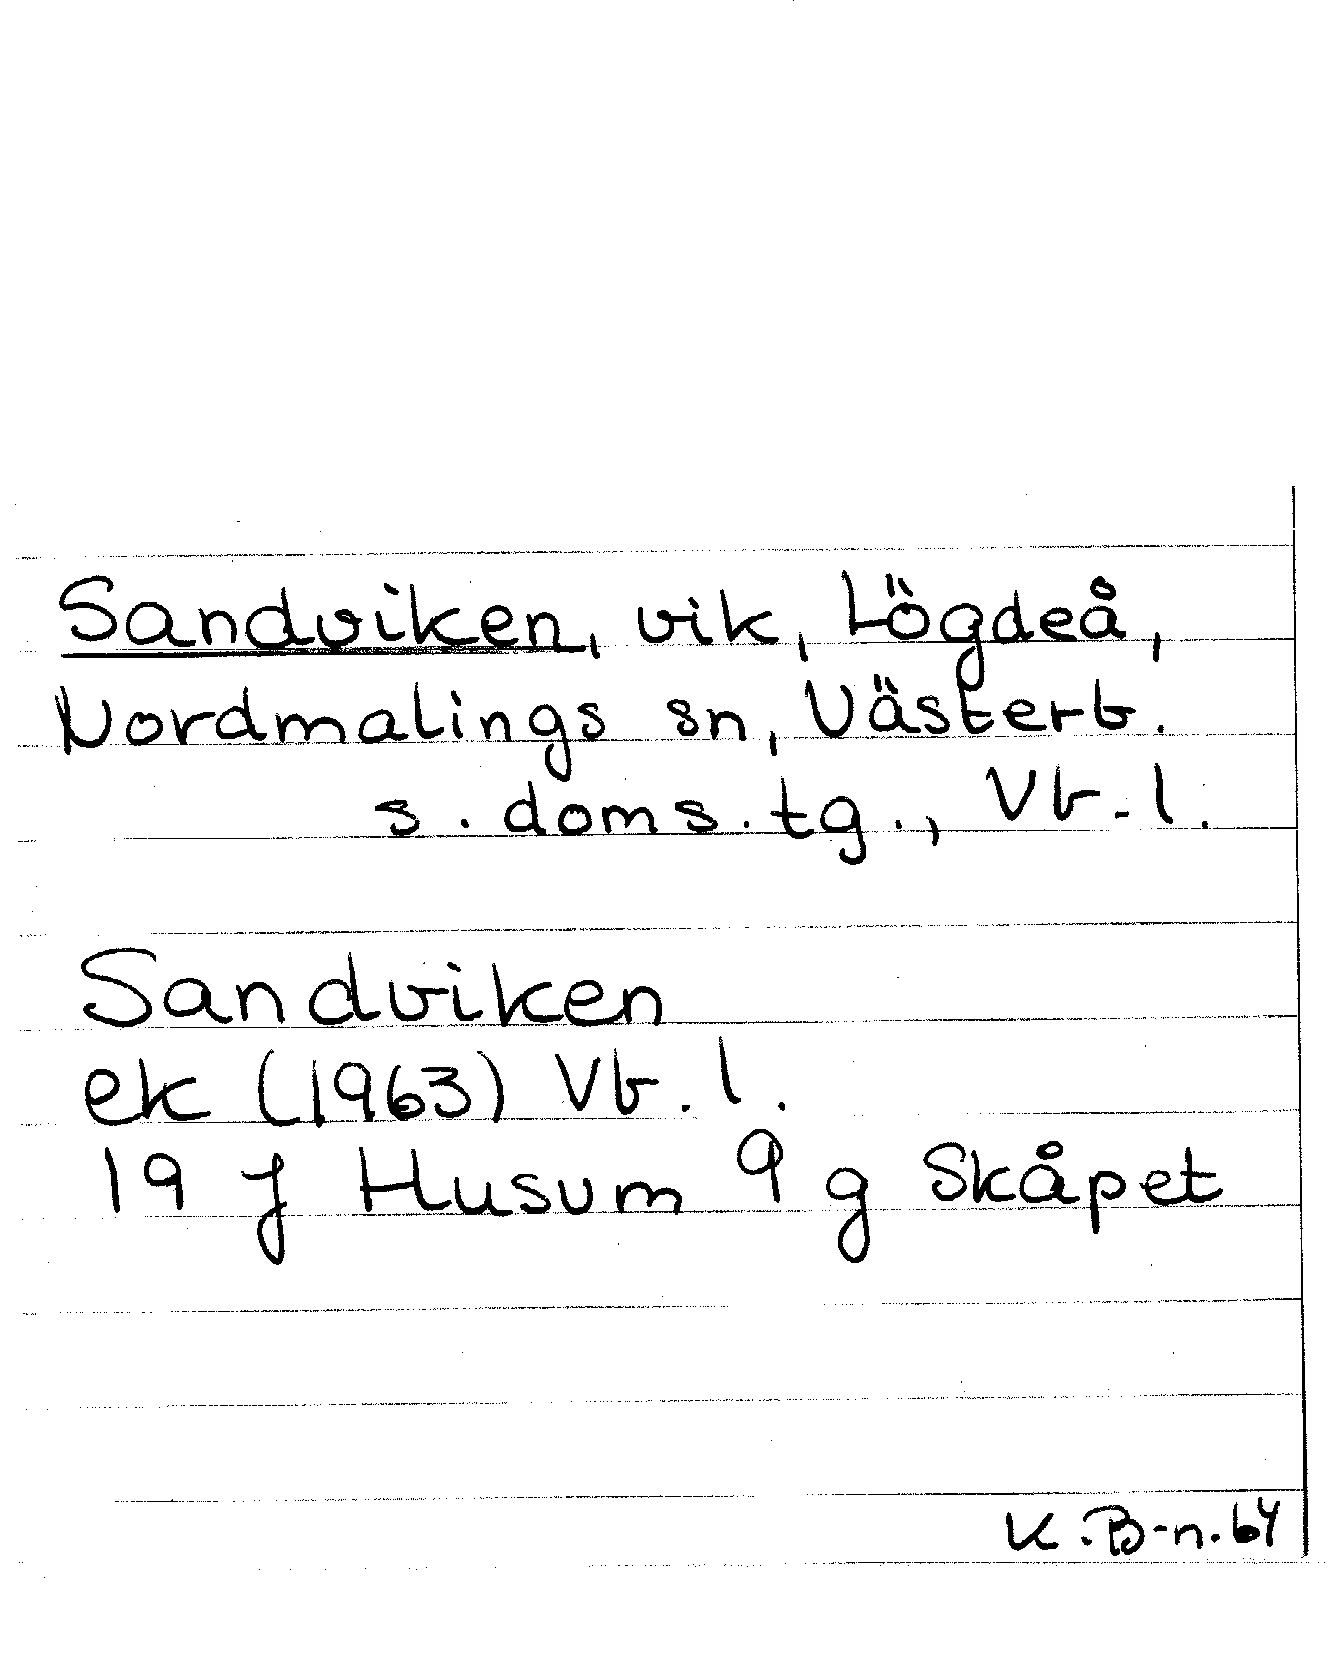 Sandviken, vik, Lögdeå,
Nordmalings sn, Västerb.
s. doms. tg., Vb. l.
Sandviken
ek (1963) Vb. l.
19 J Husum 9 g Skåpet
K.B-n. 64